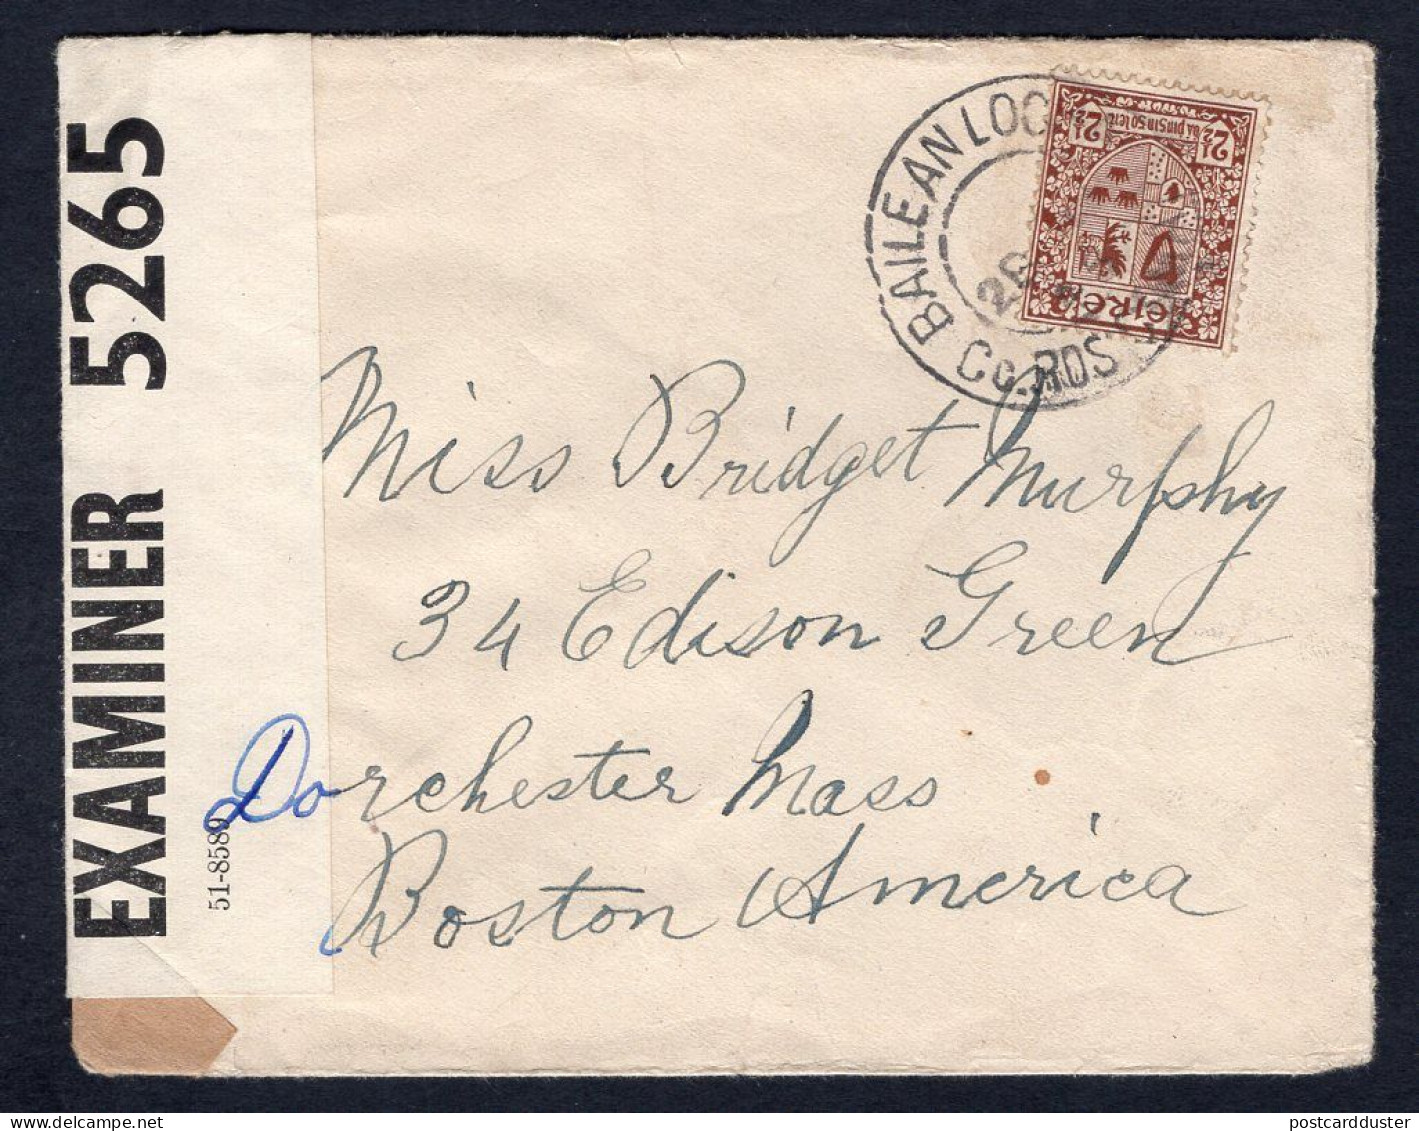 EXAMINER 5265
51-8589
BAILE AN LOC
Co. ROS
2½ 2½
éiRe
Miss Bridget Murphy
34 Edison Green
Dorchester Mass
Boston America
postcardduster